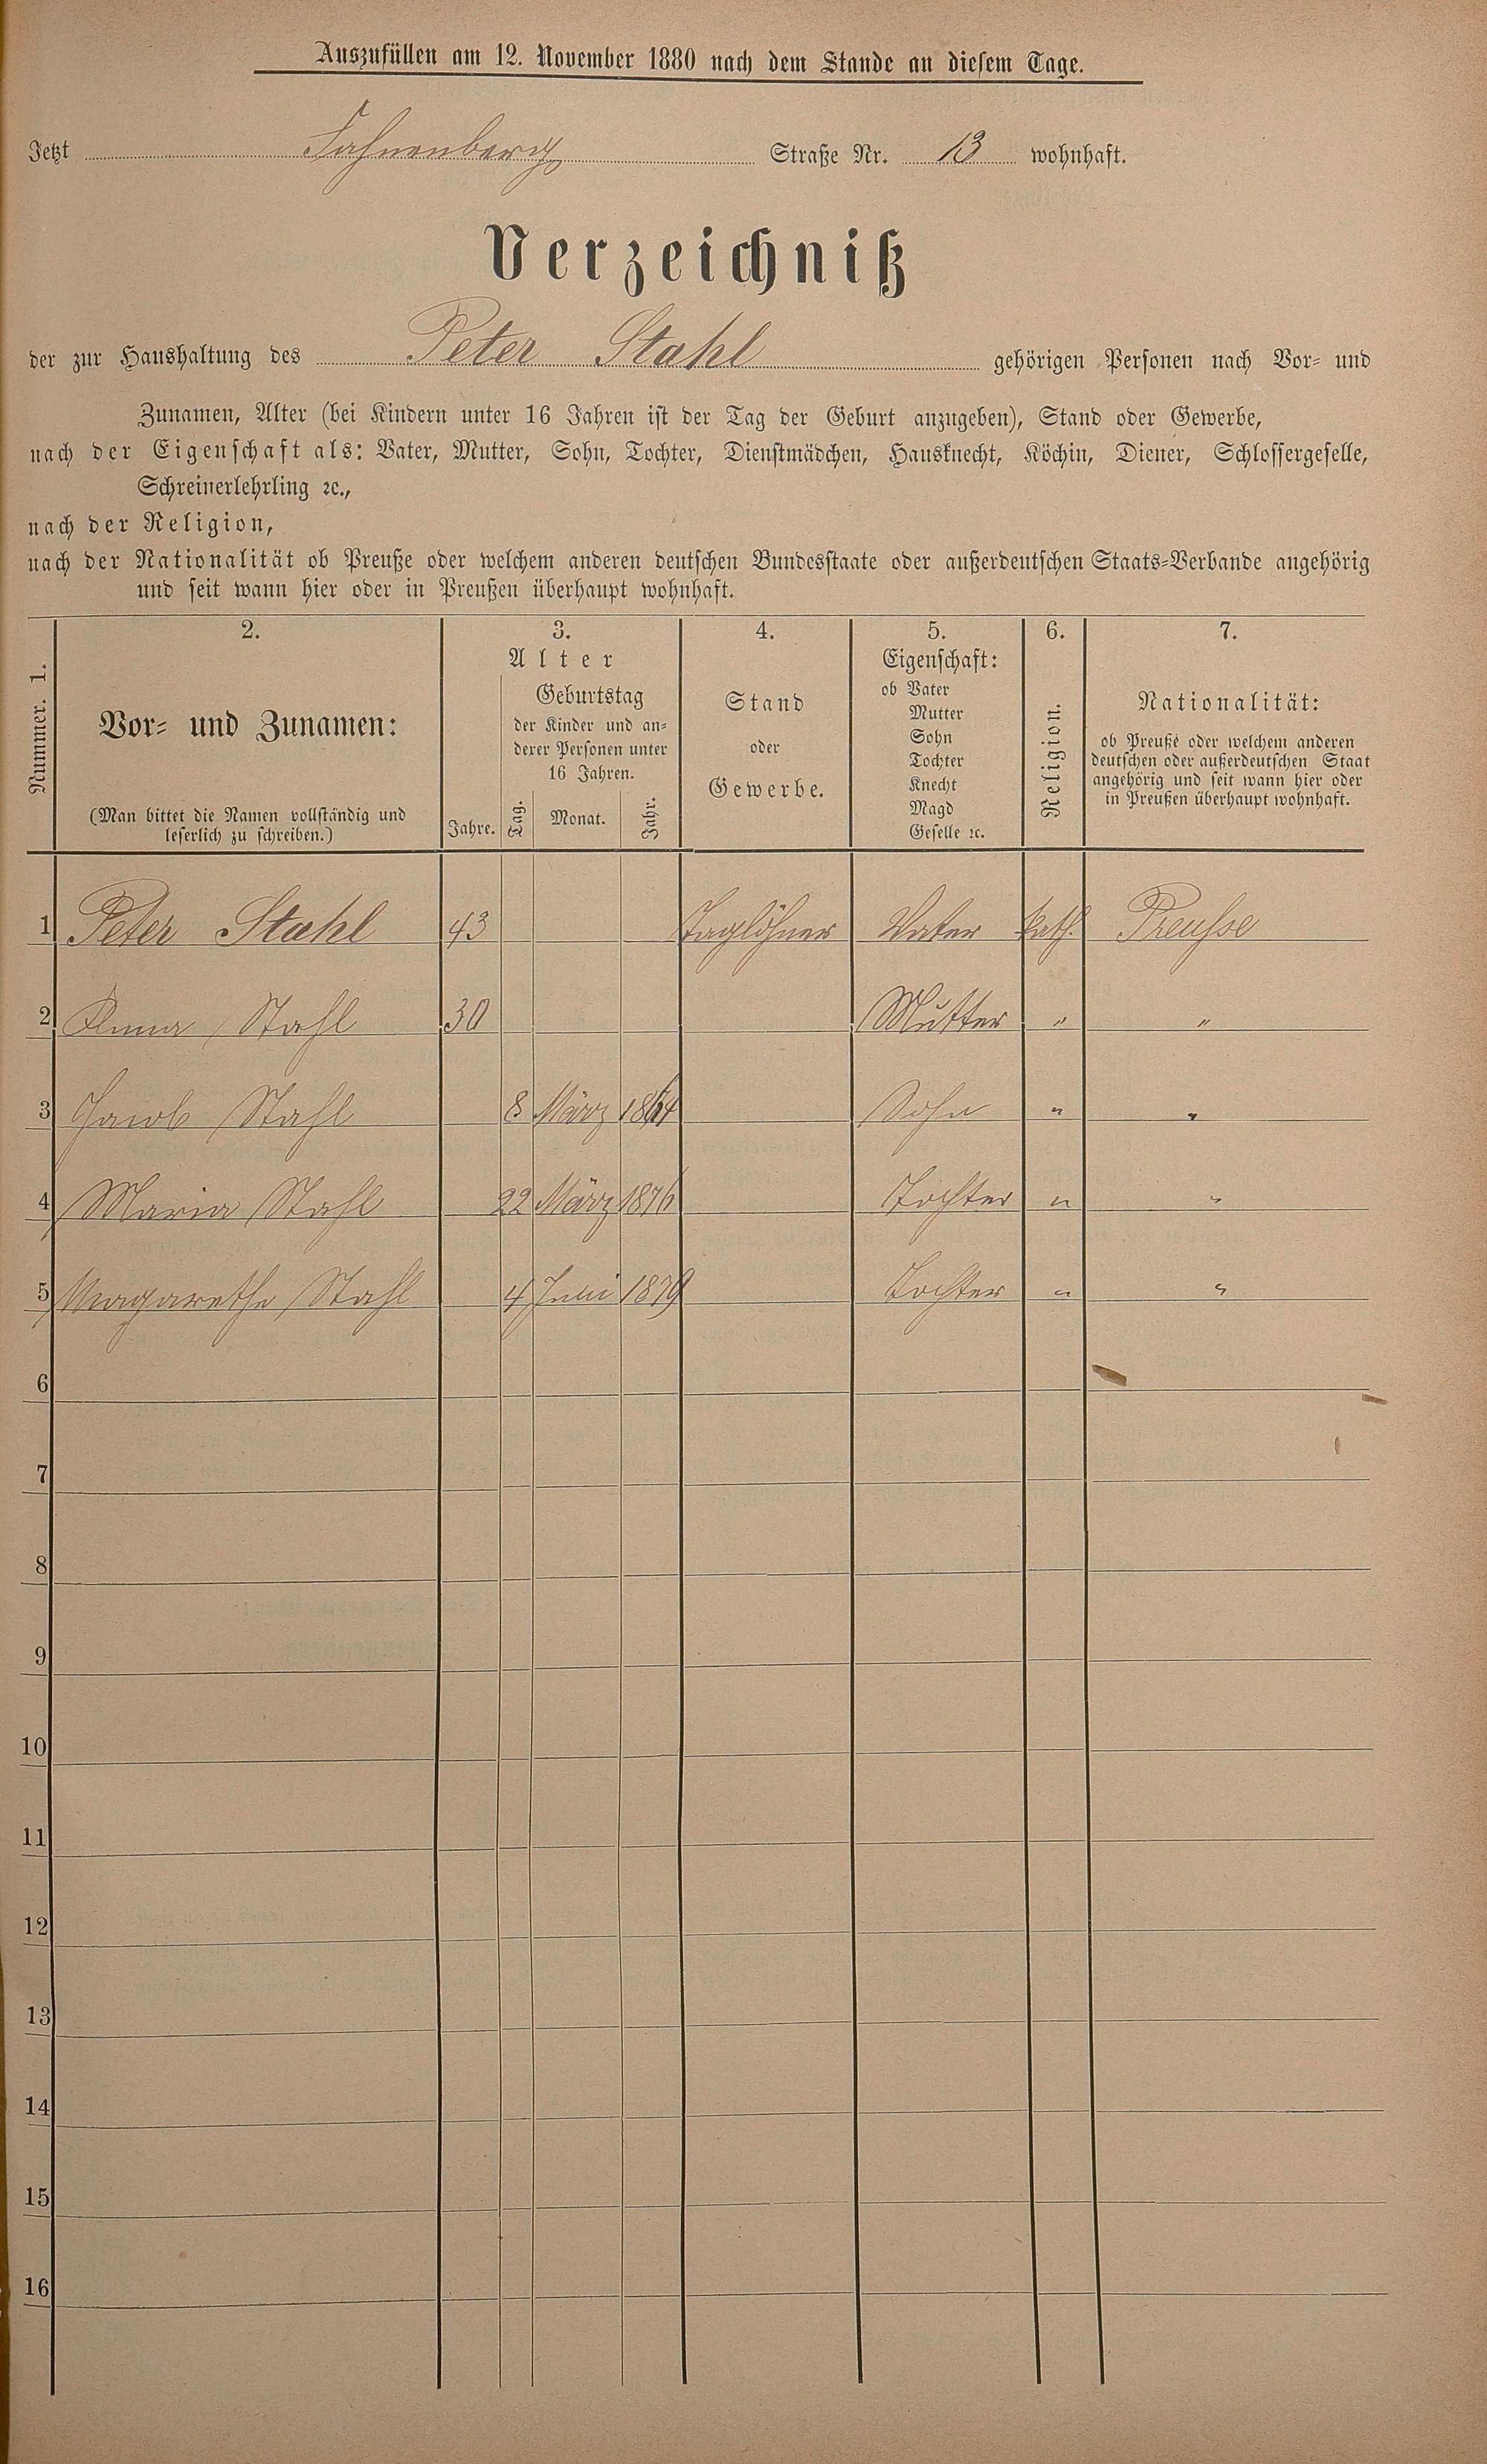 Auszufüllen am 12. November 1880 nach dem Stande an diesem Tage.
Jetzt Fahnenberg Straße Nr. 13 wohnhaft.
Verzeichniß
der zur Haushaltung des Peter Stahl gehörigen Personen nach Vor- und
Zunamen, Alter (bei Kindern unter 16 Jahren ist der Tag der Geburt anzugeben), Stand oder Gewerbe,
nach der Eigenschaft als: Vater, Mutter, Sohn, Tochter, Dienstmädchen, Hausknecht, Köchin, Diener, Schlossergeselle,
Schreinerlehrling ꝛc.,
nach der Religion,
nach der Nationalität ob Preuße oder welchem anderen deutschen Bundesstaate oder außerdeutschen Staats-Verbande angehörig
und seit wann hier oder in Preußen überhaupt wohnhaft.
Nummer. 1.
2.
Vor- und Zunamen:
(Man bittet die Namen vollständig und
leserlich zu schreiben.)
3.
Alter
Jahre.
Geburtstag
der Kinder und an-
derer Personen unter
16 Jahren.
Tag.
Monat.
Jahr.
4.
Stand
oder
Gewerbe.
5.
Eigenschaft:
ob Vater
Mutter
Sohn
Tochter
Knecht
Magd
Geselle ꝛc.
6.
Religion.
7.
Nationalität:
ob Preuße oder welchem anderen
deutschen oder außerdeutschen Staat
angehörig und seit wann hier oder
in Preußen überhaupt wohnhaft.
1 Peter Stahl 43 Taglöhner Vater kath. Preusse
2 Anna Stahl 30 Mutter " "
3 Jacob Stahl 8 März 1864 Sohn " "
4 Maria Stahl 22 März 1876 Tochter " "
5 Magarethe Stahl 4 Juli 1879 Tochter " "
6
7
8
9
10
11
12
13
14
15
16